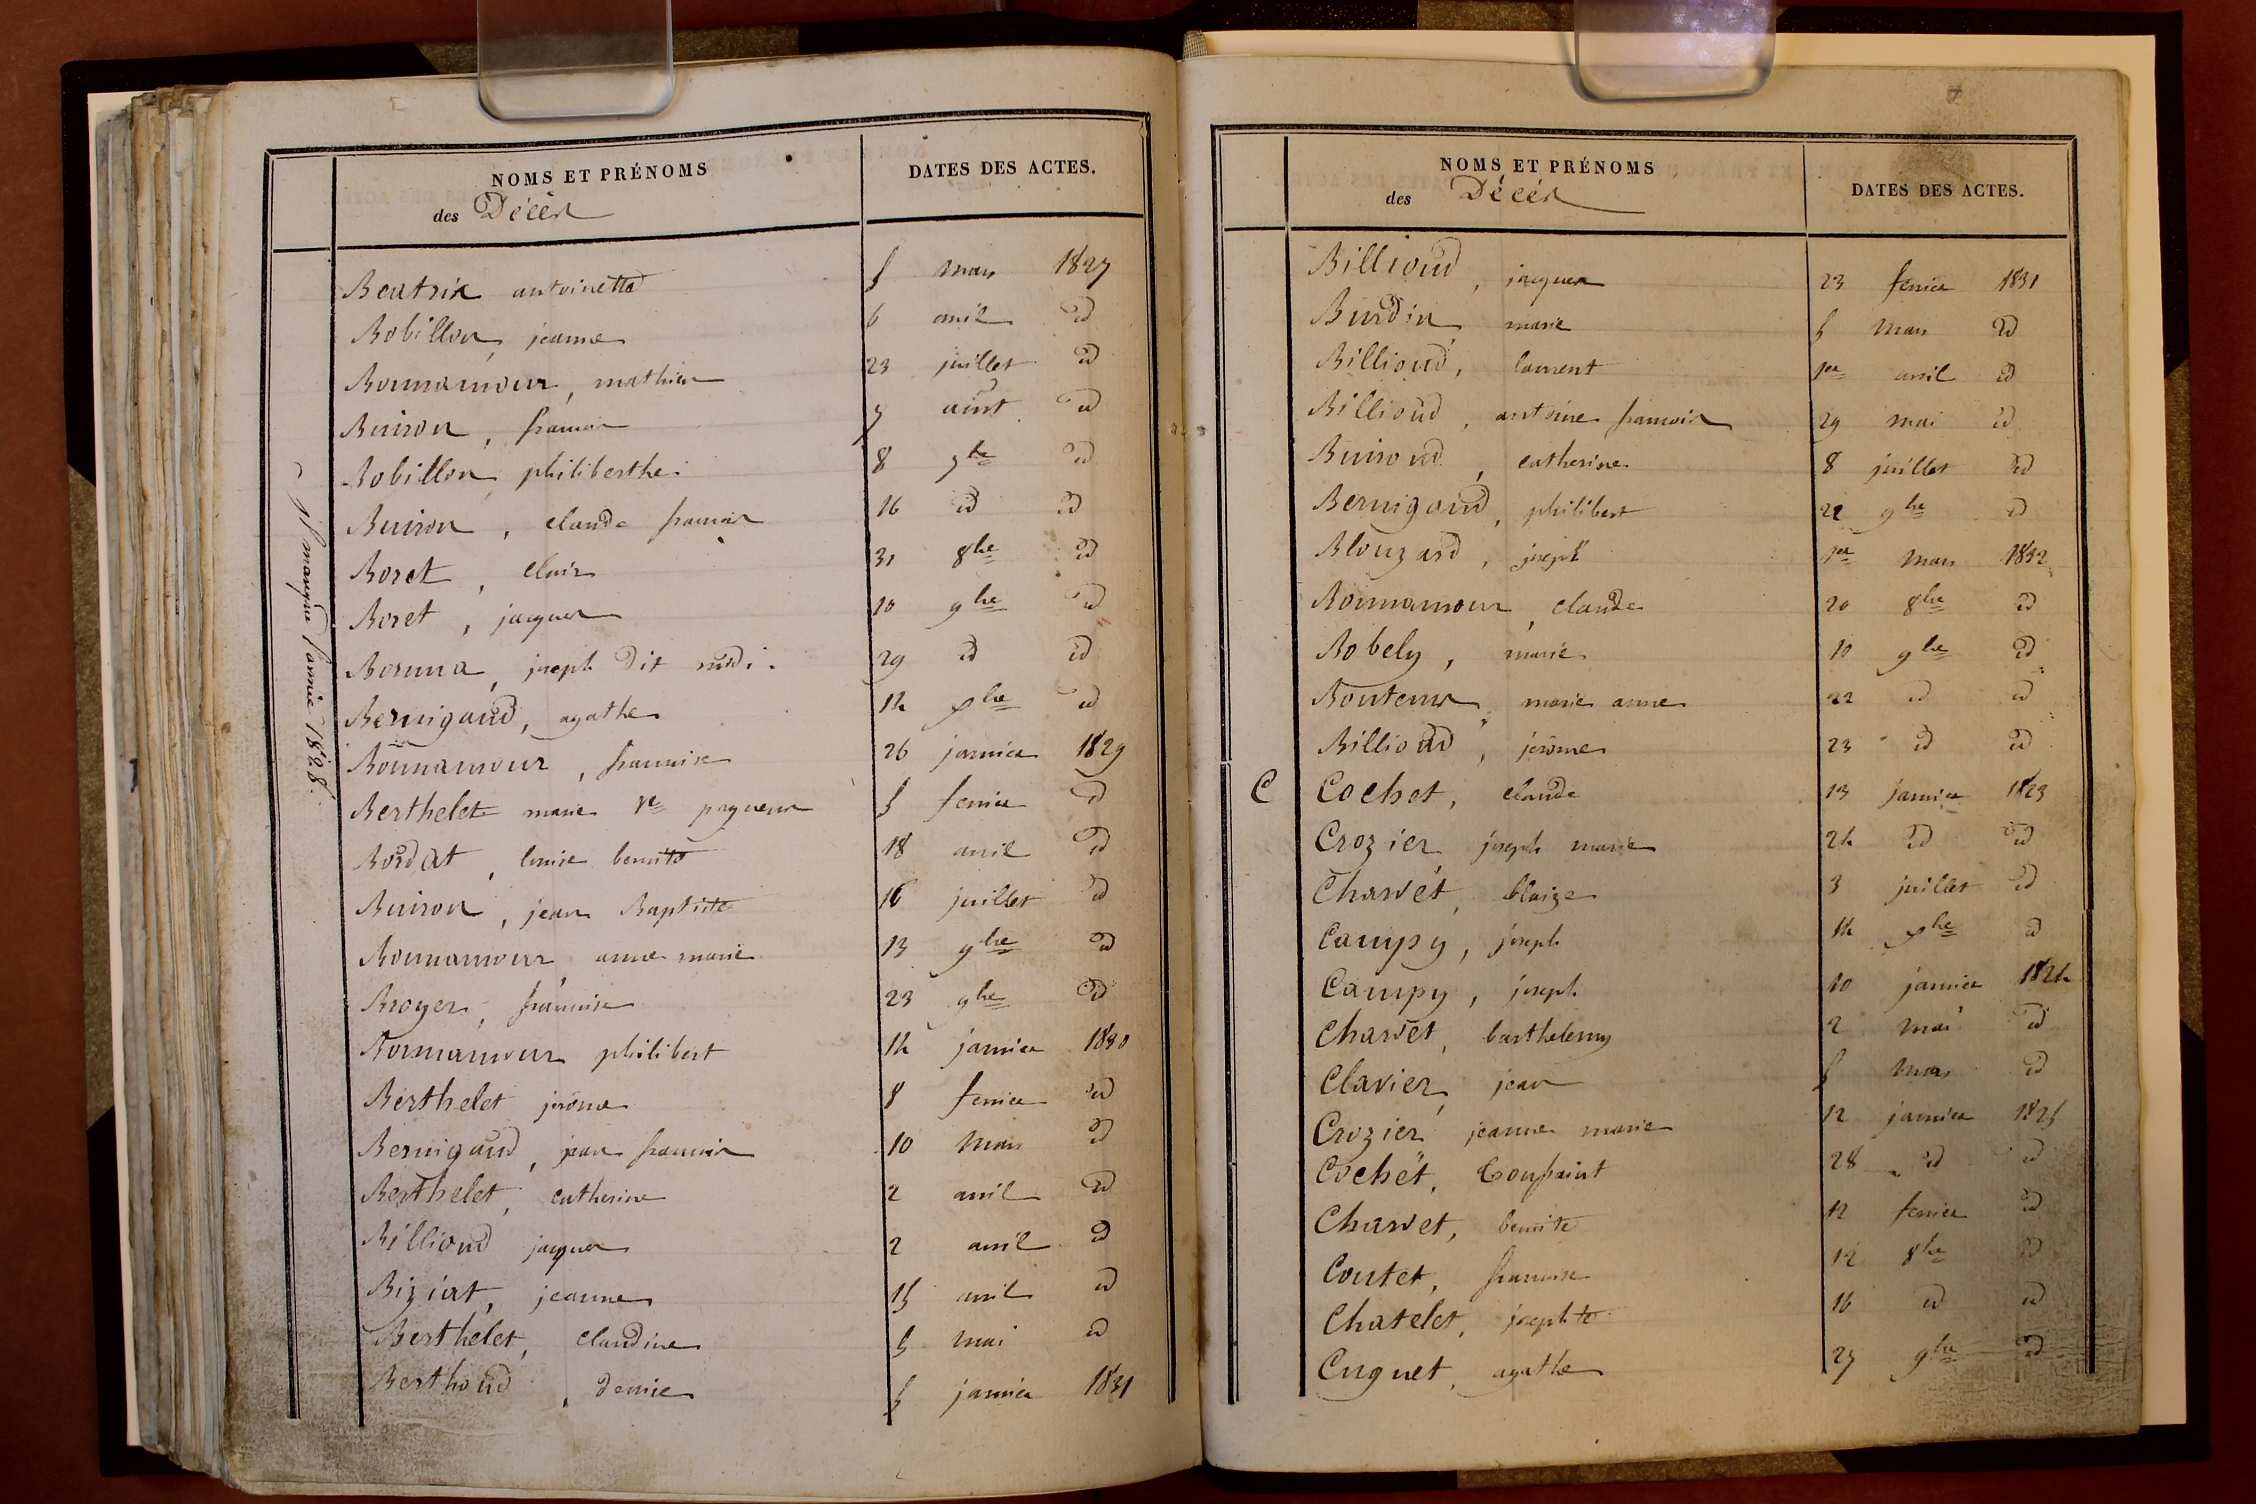 NOMS ET PRÉNOMS DATES DES ACTES.
des Décès
Beatrix antoinette 5 mars 1827
Bobillon, jeanne 6 avril id
Bonnamour, mathieu 23 juillet id
Buiron, francois 7 août id
Bobillon, philiberthe 8 7bre id
Buiron, claude francois 16 id id
Boret, clair 31 8bre id
Boret, jacques 10 9bre id
joseph dit 29 id id
Bernigaud, agathe 14 xbre id
il manque l'année 1828.
Bonnamour, francoise 26 janvier 1829
Berthelet marie ve 5 fevrier id
Bordat, benoite 18 avril id
Buiron, jean Baptiste 16 juillet id
Bonnamour anne marie 13 9bre id
Broyer, francoise 23 9bre id
Bonnamour philibert 14 janvier 1830
Berthelet jerôme 8 fevrier id
Bernigaud, jean francois 10 mars id
Berthelet, catherine 2 avril id
Billioud jacques 2 avril id
Biziat, jeanne 15 avril id
Berthelet, claudine 5 mai id
Berthoud, denise 5 janvier 1831
NOMS ET PRÉNOMS DATES DES ACTES.
des Décès
Billioud, jacques 23 fevrier 1831
Burdin, marie 5 mars id
Billioud, laurent 1er avril id
Billioud, antoine francois 29 mai id
Buiroud, catherine 8 juillet id
Bernigaud, philibert 22 9bre id
Blouzard, joseph 1er mars 1832
Bonnamour, claude 20 8bre id
Bobely, marie 10 9bre id
marie anne 22 id id
Billioud, jerôme 23 id id
C Cochet, claude 13 janvier 1823
Crozier joseph marie 24 id id
Charvet, blaize 3 juillet id
Campy, joseph 14 xbre id
Campy, joseph 10 janvier 1824
Charvet, barthelemy 2 mai id
Clavier, jean 5 mars id
Crozier jeanne marie 12 janvier 1825
Cochet, Toussaint 28 id id
Charvet, benoite 12 fevrier id
Coutet, francoise 12 8bre id
Chatelet, josephte 16 id id
Cuguet, agathe 27 9bre id